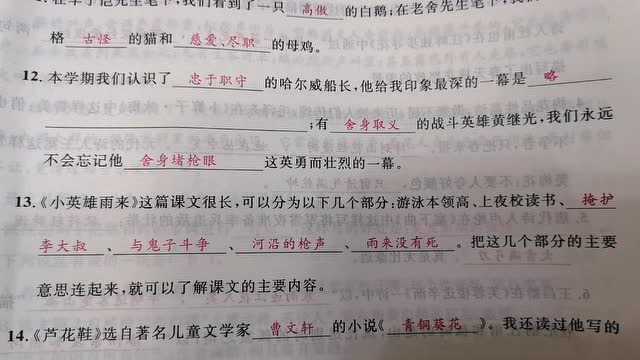 在丰子恺先生笔下,我们看到了一只 高傲 的白鹅;在老舍先生笔下,我们
格 古怪 的猫和 慈爱、尽职 的母鸡。
12.本学期我们认识了 忠于职守 的哈尔威船长,他给我印象最深的一幕是 略
;有 舍身取义 的战斗英雄黄继光,我们永远
不会忘记他 舍身堵枪眼 这英勇而壮烈的一幕。
13.《小英雄雨来》这篇课文很长,可以分为以下几个部分:游泳本领高、上夜校读书、掩护
李大叔、与鬼子斗争、河沿的枪声、雨来没有死。把这几个部分的主要
意思连起来,就可以了解课文的主要内容。
14.《芦花鞋》选自著名儿童文学家 曹文轩 的小说《青铜葵花》。我还读过他写的